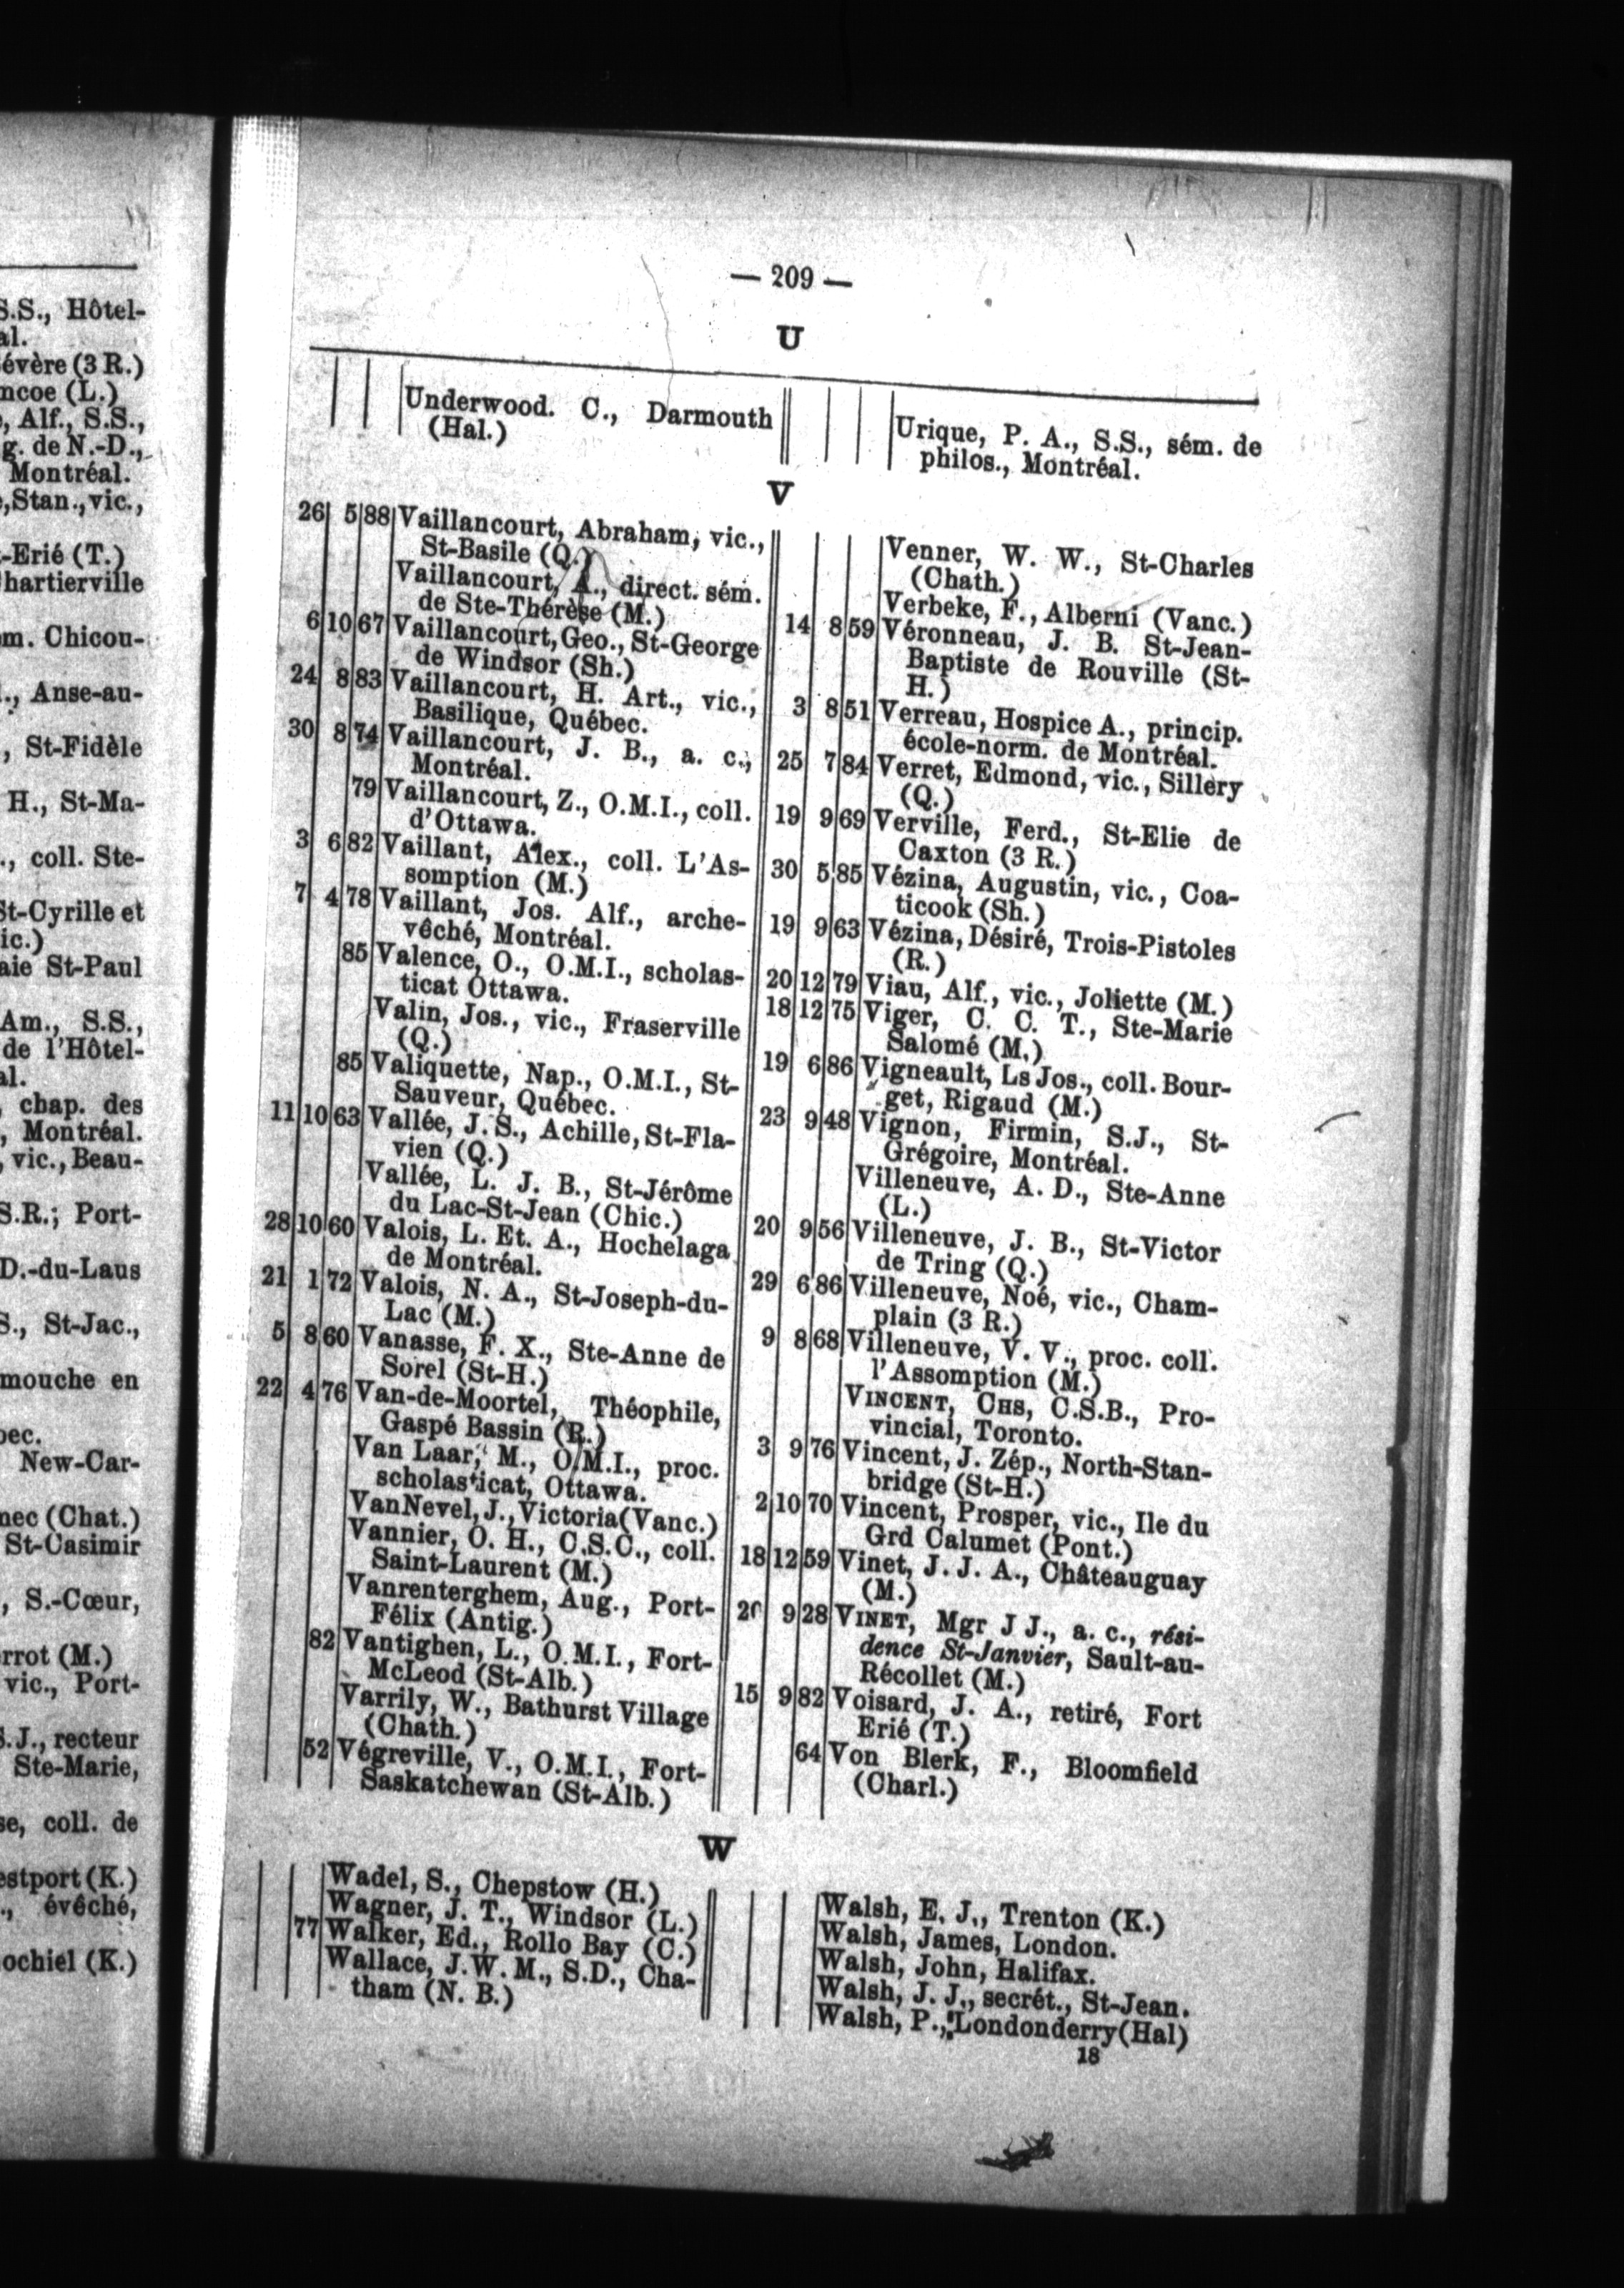 S.S., Hôtel-
al.
évère (3 R.)
ncoe (L.)
, Alf., S.S.,
g. de N.-D.,
Montréal.
,Stan.,vic.,
-Erié (T.)
hartierville
m. Chicou-
., Anse-au-
, St-Fidèle
H., St-Ma-
., coll. Ste-
St-Cyrille et
ic.)
aie St-Paul
Am., S.S.,
de l'Hôtel-
al.
, chap. des
, Montréal.
, vic., Beau-
S.R.; Port-
D.-du-Laus
S., St-Jac.,
mouche en
bec.
New-Car-
nec (Chat.)
St-Casimir
, S.-Cœur,
rrot (M.)
vic., Port-
S.J., recteur
Ste-Marie,
se, coll. de
estport (K.)
., évêché,
ochiel (K.)
— 209 —
U
Underwood. C., Darmouth
(Hal.)
Urique, P. A., S.S., sém. de
philos., Montréal.
V
26 5 88 Vaillancourt, Abraham, vic.,
St-Basile (Q.)
Vaillancourt, A., direct. sém.
de Ste-Thérèse (M.)
6 10 67 Vaillancourt, Geo., St-George
de Windsor (Sh.)
24 8 83 Vaillancourt, H. Art., vic.,
Basilique, Québec.
30 8 74 Vaillancourt, J. B., a. c.,
Montréal.
79 Vaillancourt, Z., O.M.I., coll.
d'Ottawa.
3 6 82 Vaillant, Alex., coll. L'As-
somption (M.)
7 4 78 Vaillant, Jos. Alf., arche-
vêché, Montréal.
85 Valence, O., O.M.I., scholas-
ticat Ottawa.
Valin, Jos., vic., Fraserville
(Q.)
85 Valiquette, Nap., O.M.I., St-
Sauveur, Québec.
11 10 63 Vallée, J. S., Achille, St-Fla-
vien (Q.)
Vallée, L. J. B., St-Jérôme
du Lac-St-Jean (Chic.)
28 10 60 Valois, L. Et. A., Hochelaga
de Montréal.
21 1 72 Valois, N. A., St-Joseph-du-
Lac (M.)
5 8 60 Vanasse, F. X., Ste-Anne de
Sorel (St-H.)
22 4 76 Van-de-Moortel, Théophile,
Gaspé Bassin (R.)
Van Laar, M., O.M.I., proc.
scholasticat, Ottawa.
VanNevel, J., Victoria (Vanc.)
Vannier, O. H., C.S.C., coll.
Saint-Laurent (M.)
Vanrenterghem, Aug., Port-
Félix (Antig.)
82 Vantighen, L., O.M.I., Fort-
McLeod (St-Alb.)
Varrily, W., Bathurst Village
(Chath.)
52 Végreville, V., O.M.I., Fort-
Saskatchewan (St-Alb.)
Venner, W. W., St-Charles
(Chath.)
Verbeke, F., Alberni (Vanc.)
14 8 59 Véronneau, J. B. St-Jean-
Baptiste de Rouville (St-
H.)
3 8 51 Verreau, Hospice A., princip.
école-norm. de Montréal.
25 7 84 Verret, Edmond, vic., Sillery
(Q.)
19 9 69 Verville, Ferd., St-Elie de
Caxton (3 R.)
30 5 85 Vézina, Augustin, vic., Coa-
ticook (Sh.)
19 9 63 Vézina, Désiré, Trois-Pistoles
(R.)
20 12 79 Viau, Alf., vic., Joliette (M.)
18 12 75 Viger, C. C. T., Ste-Marie
Salomé (M.)
19 6 86 Vigneault, Ls Jos., coll. Bour-
get, Rigaud (M.)
23 9 48 Vignon, Firmin, S.J., St-
Grégoire, Montréal.
Villeneuve, A. D., Ste-Anne
(L.)
20 9 56 Villeneuve, J. B., St-Victor
de Tring (Q.)
29 6 86 Villeneuve, Noé, vic., Cham-
plain (3 R.)
9 8 68 Villeneuve, V. V., proc. coll.
l'Assomption (M.)
VINCENT, CHS, C.S.B., Pro-
vincial, Toronto.
3 9 76 Vincent, J. Zép., North-Stan-
bridge (St-H.)
2 10 70 Vincent, Prosper, vic., Ile du
Grd Calumet (Pont.)
18 12 59 Vinet, J. J. A., Châteauguay
(M.)
20 9 28 VINET, Mgr J J., a. c., rési-
dence St-Janvier, Sault-au-
Récollet (M.)
15 9 82 Voisard, J. A., retiré, Fort
Erié (T.)
64 Von Blerk, F., Bloomfield
(Charl.)
W
Wadel, S., Chepstow (H.)
Wagner, J. T., Windsor (L.)
77 Walker, Ed., Rollo Bay (C.)
Wallace, J. W. M., S.D., Cha-
tham (N. B.)
Walsh, E. J., Trenton (K.)
Walsh, James, London.
Walsh, John, Halifax.
Walsh, J. J., secrét., St-Jean.
Walsh, P., Londonderry (Hal)
18